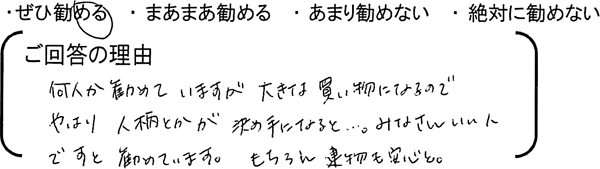 ・ぜひ勧める ・まあまあ勧める ・あまり勧めない ・絶対に勧めない
ご回答の理由
何人か勧めていますが 大きな買い物になるので
やはり 人柄とかが 決め手になると…。みなさんいい人
ですと 勧めています。 もちろん 建物も安心と。